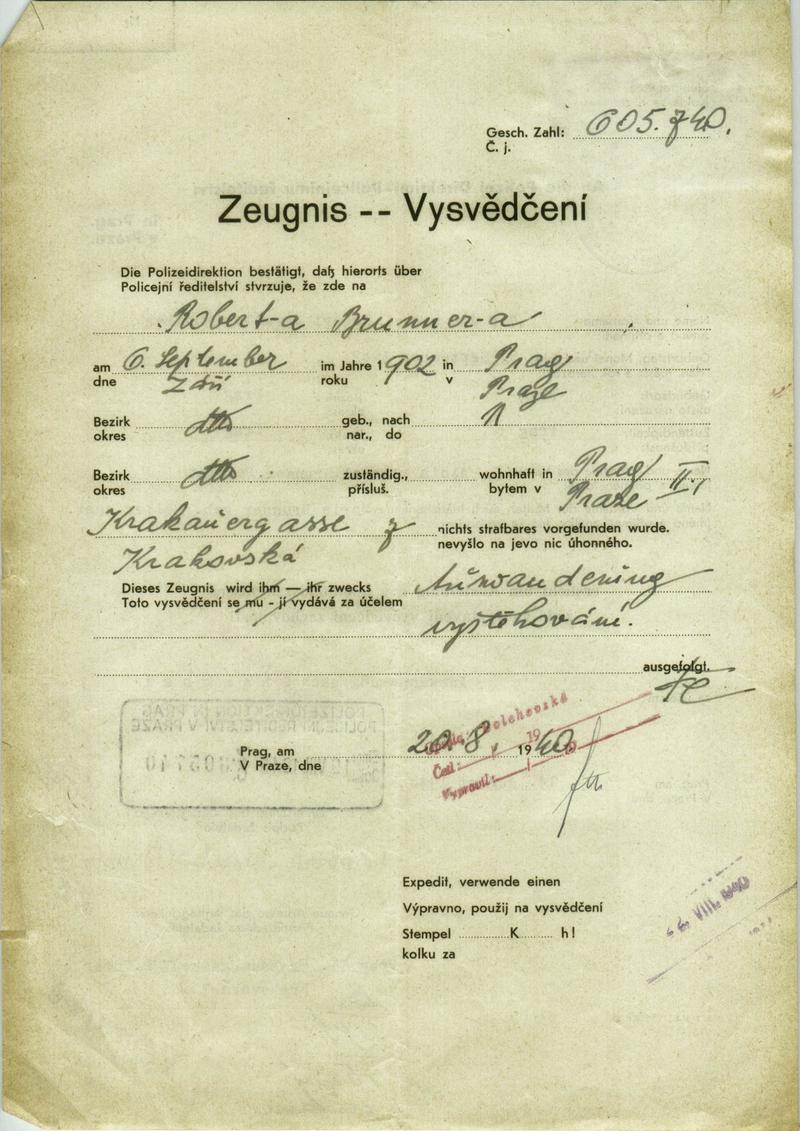 Gesch. Zahl: 605.740.
Č. j.
Zeugnis -- Vysvědčení
Die Polizeidirektion bestätigt, daß hierorts über
Policejní ředitelství stvrzuje, že zde na
Robert-a Brunner-a
am 6. September im Jahre 1902 in Prag
dne Září roku v Praze
Bezirk dtto geb., nach
okres nar., do
Bezirk dtto zuständig., wohnhaft in Prag II.,
okres přísluš. bytem v Praze
Krakauergasse 7 nichts strafbares vorgefunden wurde.
Krakovská nevyšlo na jevo nic úhonného.
Dieses Zeugnis wird ihm — ihr zwecks Auswanderung
Toto vysvědčení se mu - jí vydává za účelem
vystěhování.
ausgefolgt.
Prag, am 20. 8. 1940
V Praze, dne
Čet:
Vypravil:
Expedit, verwende einen
Výpravno, použij na vysvědčení
Stempel K h!
kolku za
VIII. 1940